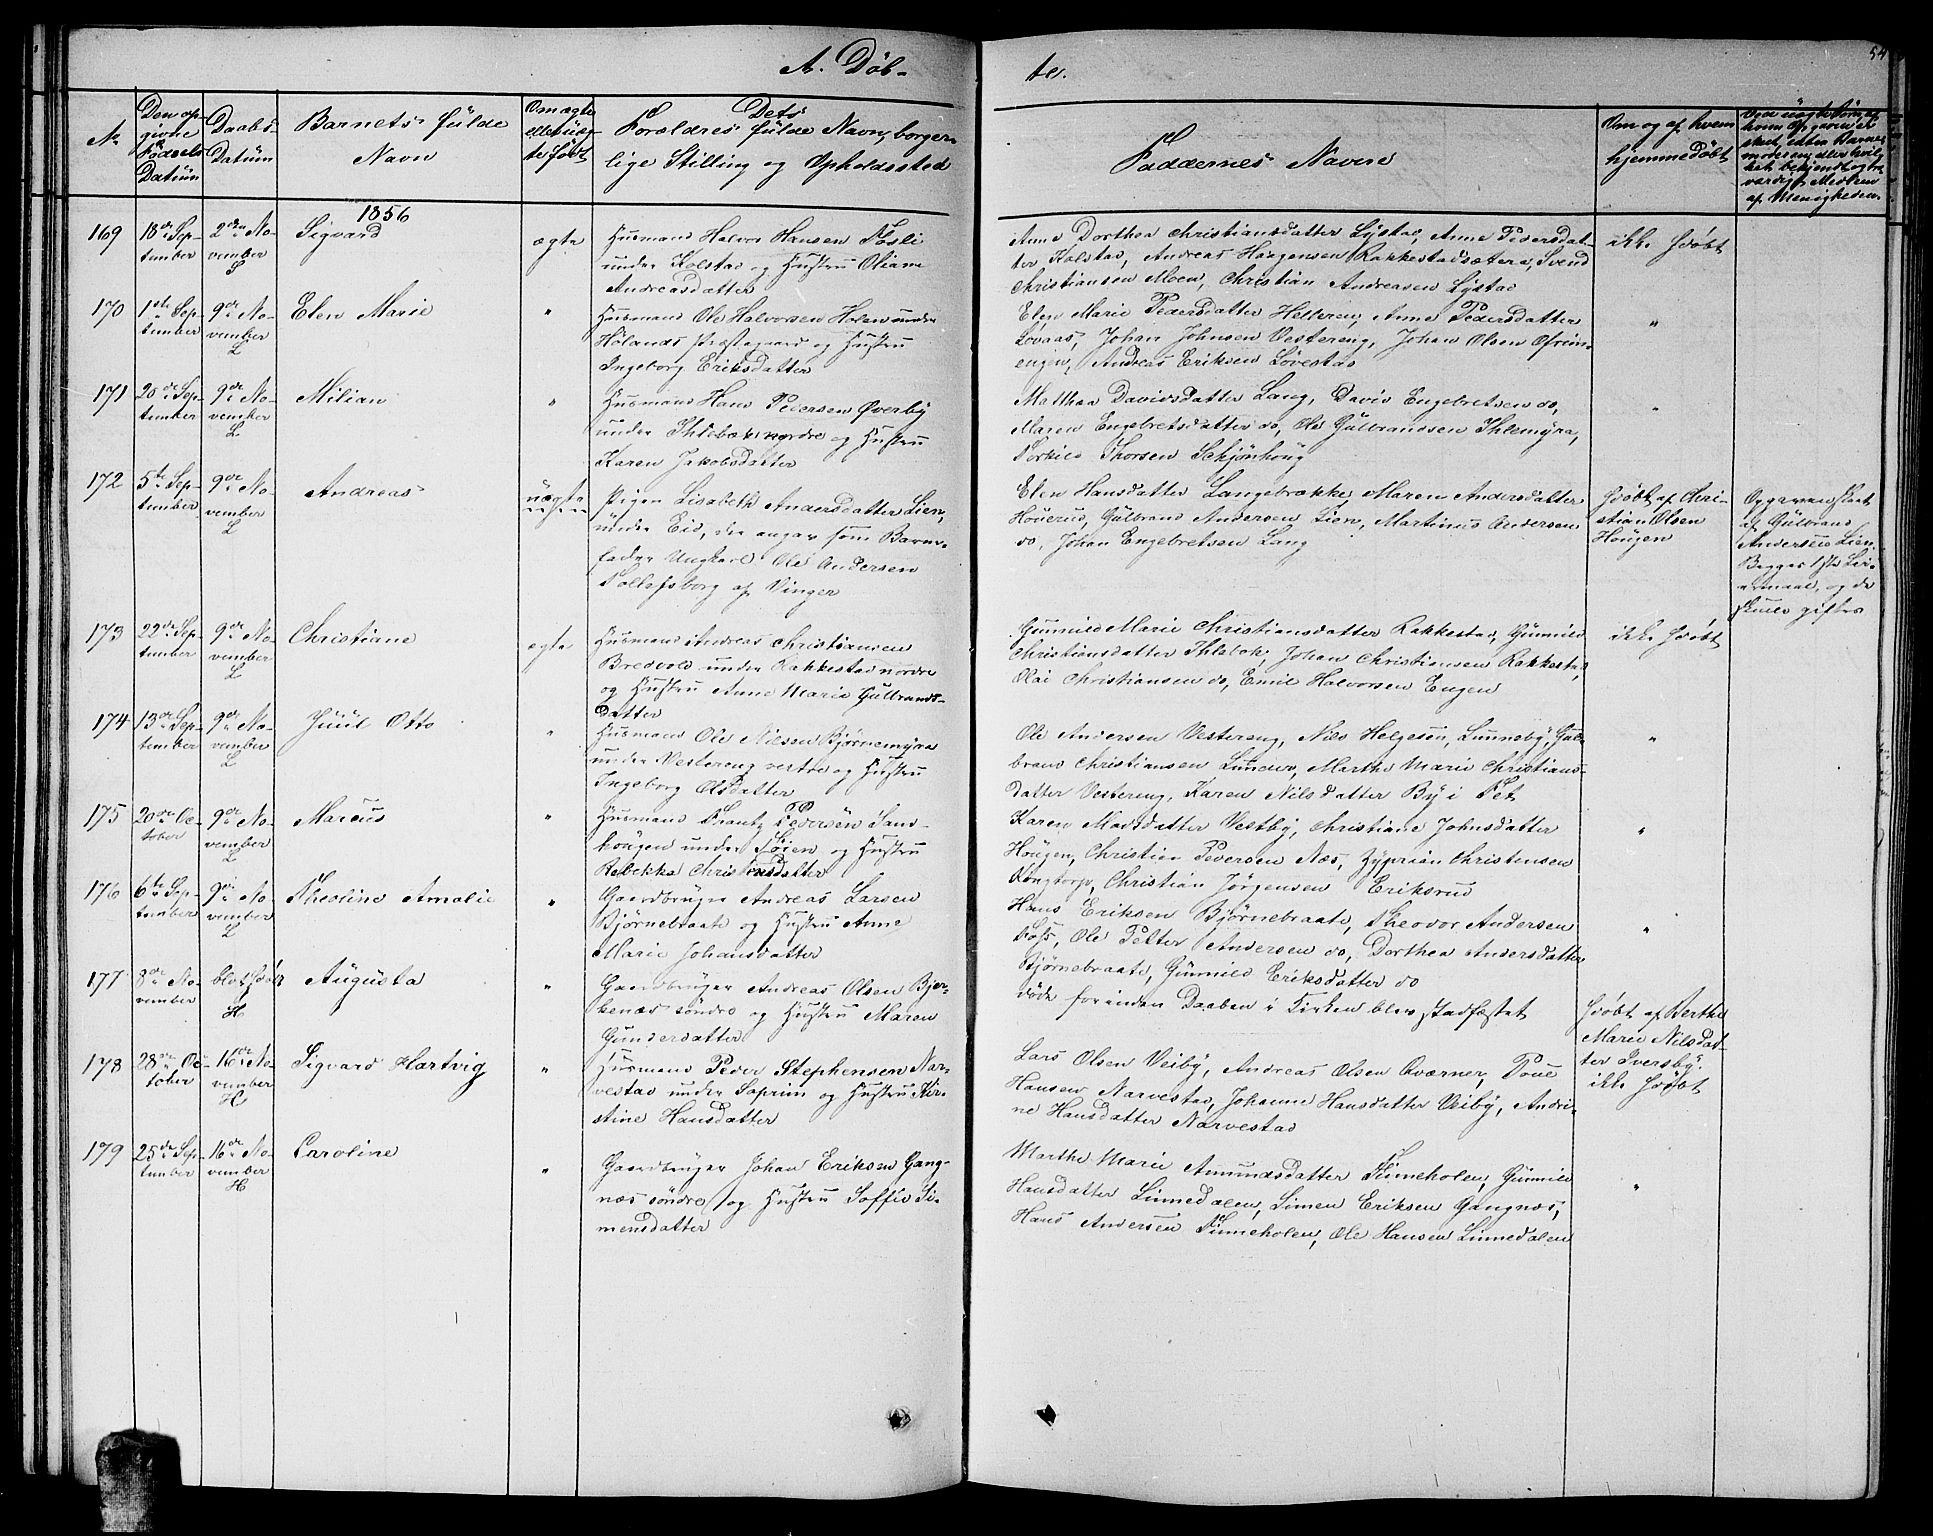 A. Døb-
te.
54
No
Den op-
givne
Fødsels
Datum
Daabs-
Datum
Barnets fulde
Navn
Om ægte
eller uæg-
te født
Dets
Forældres fulde Navn, borger-
lige Stilling og Opholdssted
Faddernes Navne
Om og af hvem
hjemmedøbt
1856
169
18de Sep-
tember
2den No-
vember
L
Sigvard
ægte
Husmand Halvor Hansen Fosli
under Kolstad og Hustru Oliane
Andreasdatter
Anne Dorthea Christiansdatter Lystad, Anne Pedersdat-
ter Kolstad, Andreas Haagensen Rakkestadsætern, Svend
Christiansen Moen, Christian Andreasen Lystad
ikke hdøbt
170
1ste Sep-
tember
9de No-
vember
L
Elen Marie
"
Husmand Ole Halvorsen Holen under
Hølands Præstegaard og Hustru
Ingeborg Eriksdatter
Elen Marie Pedersdatter Hellren, Anne Pedersdatter
Løvaas, Johan Johnsen Vestereng, Johan Olsen
engen, Andreas Eriksen Løvestad
"
171
20de Sep-
tember
9de No-
vember
L
Milian
"
Husmand Hans Pedersen Øverby
under Ihlebæk nordre og Hustru
Karen Jakobsdatter
Matthea Davidsdatter Lang, David Engebretsen do,
Maren Engebretsdatter do, Ole Gulbrandsen Ihlemyra,
Torkild Thorsen Schjønhoug
"
172
5te Sep-
tember
9de No-
vember
L
Andreas
uægte
Pigen Lisabeth Andersdatter Lien,
under Eid, der angav som Barne-
fader Ungkarl Ole Andersen
Tollefsborg af Vinger
Elen Hansdatter Langebrække, Maren Andersdatter
Houerud, Gulbrand Andersen Lien, Martinus Andersen
do, Johan Engebretsen Lang
hdøbt af Chri-
stian Olsen
Hougen
Opgaven skeet
af Gulbrand
Andersen Lien.
Begges 1ste Lei-
ermaal, og de
skulle giftes
173
22de Sep-
tember
9de No-
vember
L
Christiane
ægte
Husmand Andreas Christiansen
Bredvold under Rakkestad nordre
og Hustru Anne Marie Gulbrands-
datter
Gunnild Marie Christiansdatter Rakkestad, Gunnild
Christiansdatter Ihlebæk, Johan Christiansen Rakkestad,
Olai Christiansen do, Emil Halvorsen Engen
ikke hdøbt
174
13de Sep-
tember
9de No-
vember
L
Juul Otto
"
Husmand Ole Nilssen Bjørnemyra
under Vestereng vestre og Hustru
Ingeborg Olsdatter
Ole Andersen Vestereng, Nils Helgesen, Lunneby, Gul-
brand Christiansen Lunder, Marthe Marie Christians-
datter Vestereng, Karen Nilsdatter By i Fet
"
175
20de Oc-
tober
9de No-
vember
L
Marcus
"
Husmand Frantz Pedersen Sand-
hougen under Tøien og Hustru
Rebekka Christensdatter
Karen Madsdatter Vestby, Christiane Johnsdatter
Hougen, Christian Pedersen Næs, Zyprian Christensen
Kongtorp, Christian Jørgensen Eriksrud
"
176
6te Sep-
tember
9de No-
vember
L
Theoline Amalie
"
Gaardbruger Andreas Larsen
Bjørnebraate og Hustru Anne
Marie Johansdatter
Hans Eriksen Bjørnebraate, Theodor Andersen
Foss, Ole Petter Andersen do, Dorthea Andersdatter
Bjørnebraate, Gunnild Eriksdatter do
"
177
8de No-
vember
blot hdøbt
H
Augusta
"
Gaardbruger Andreas Olsen Bjer-
kenæs søndre og Hustru Maren
Gundersdatter
døde forinden Daaben i Kirken blev stadfæstet
hdøbt af Berthe
Marie Nilsdat-
ter Iversby.
178
28de Oc-
tober
16de No-
vember
H
Sigvard Hartvig
"
Husmand Peder Stephensen Nar-
vestad under Soprim og Hustru Kir-
stine Hansdatter
Lars Olsen Veiby, Andreas Olsen Qværner, Poul
Hansen Narvestad, Johanne Hansdatter Veiby, Andri-
ne Hansdatter Narvestad
ikke hdøbt
179
25de Sep-
tember
16de No-
vember
H
Caroline
"
Gaardbruger Johan Eriksen Gang-
næs søndre og Hustru Soffie Si-
mensdatter
Marthe Marie Amundsdatter Finneholen, Gunnild
Hansdatter Linnedalen, Simen Eriksen Gangnæs,
Hans Andersen Finneholen, Ole Hansen Linnedalen
"